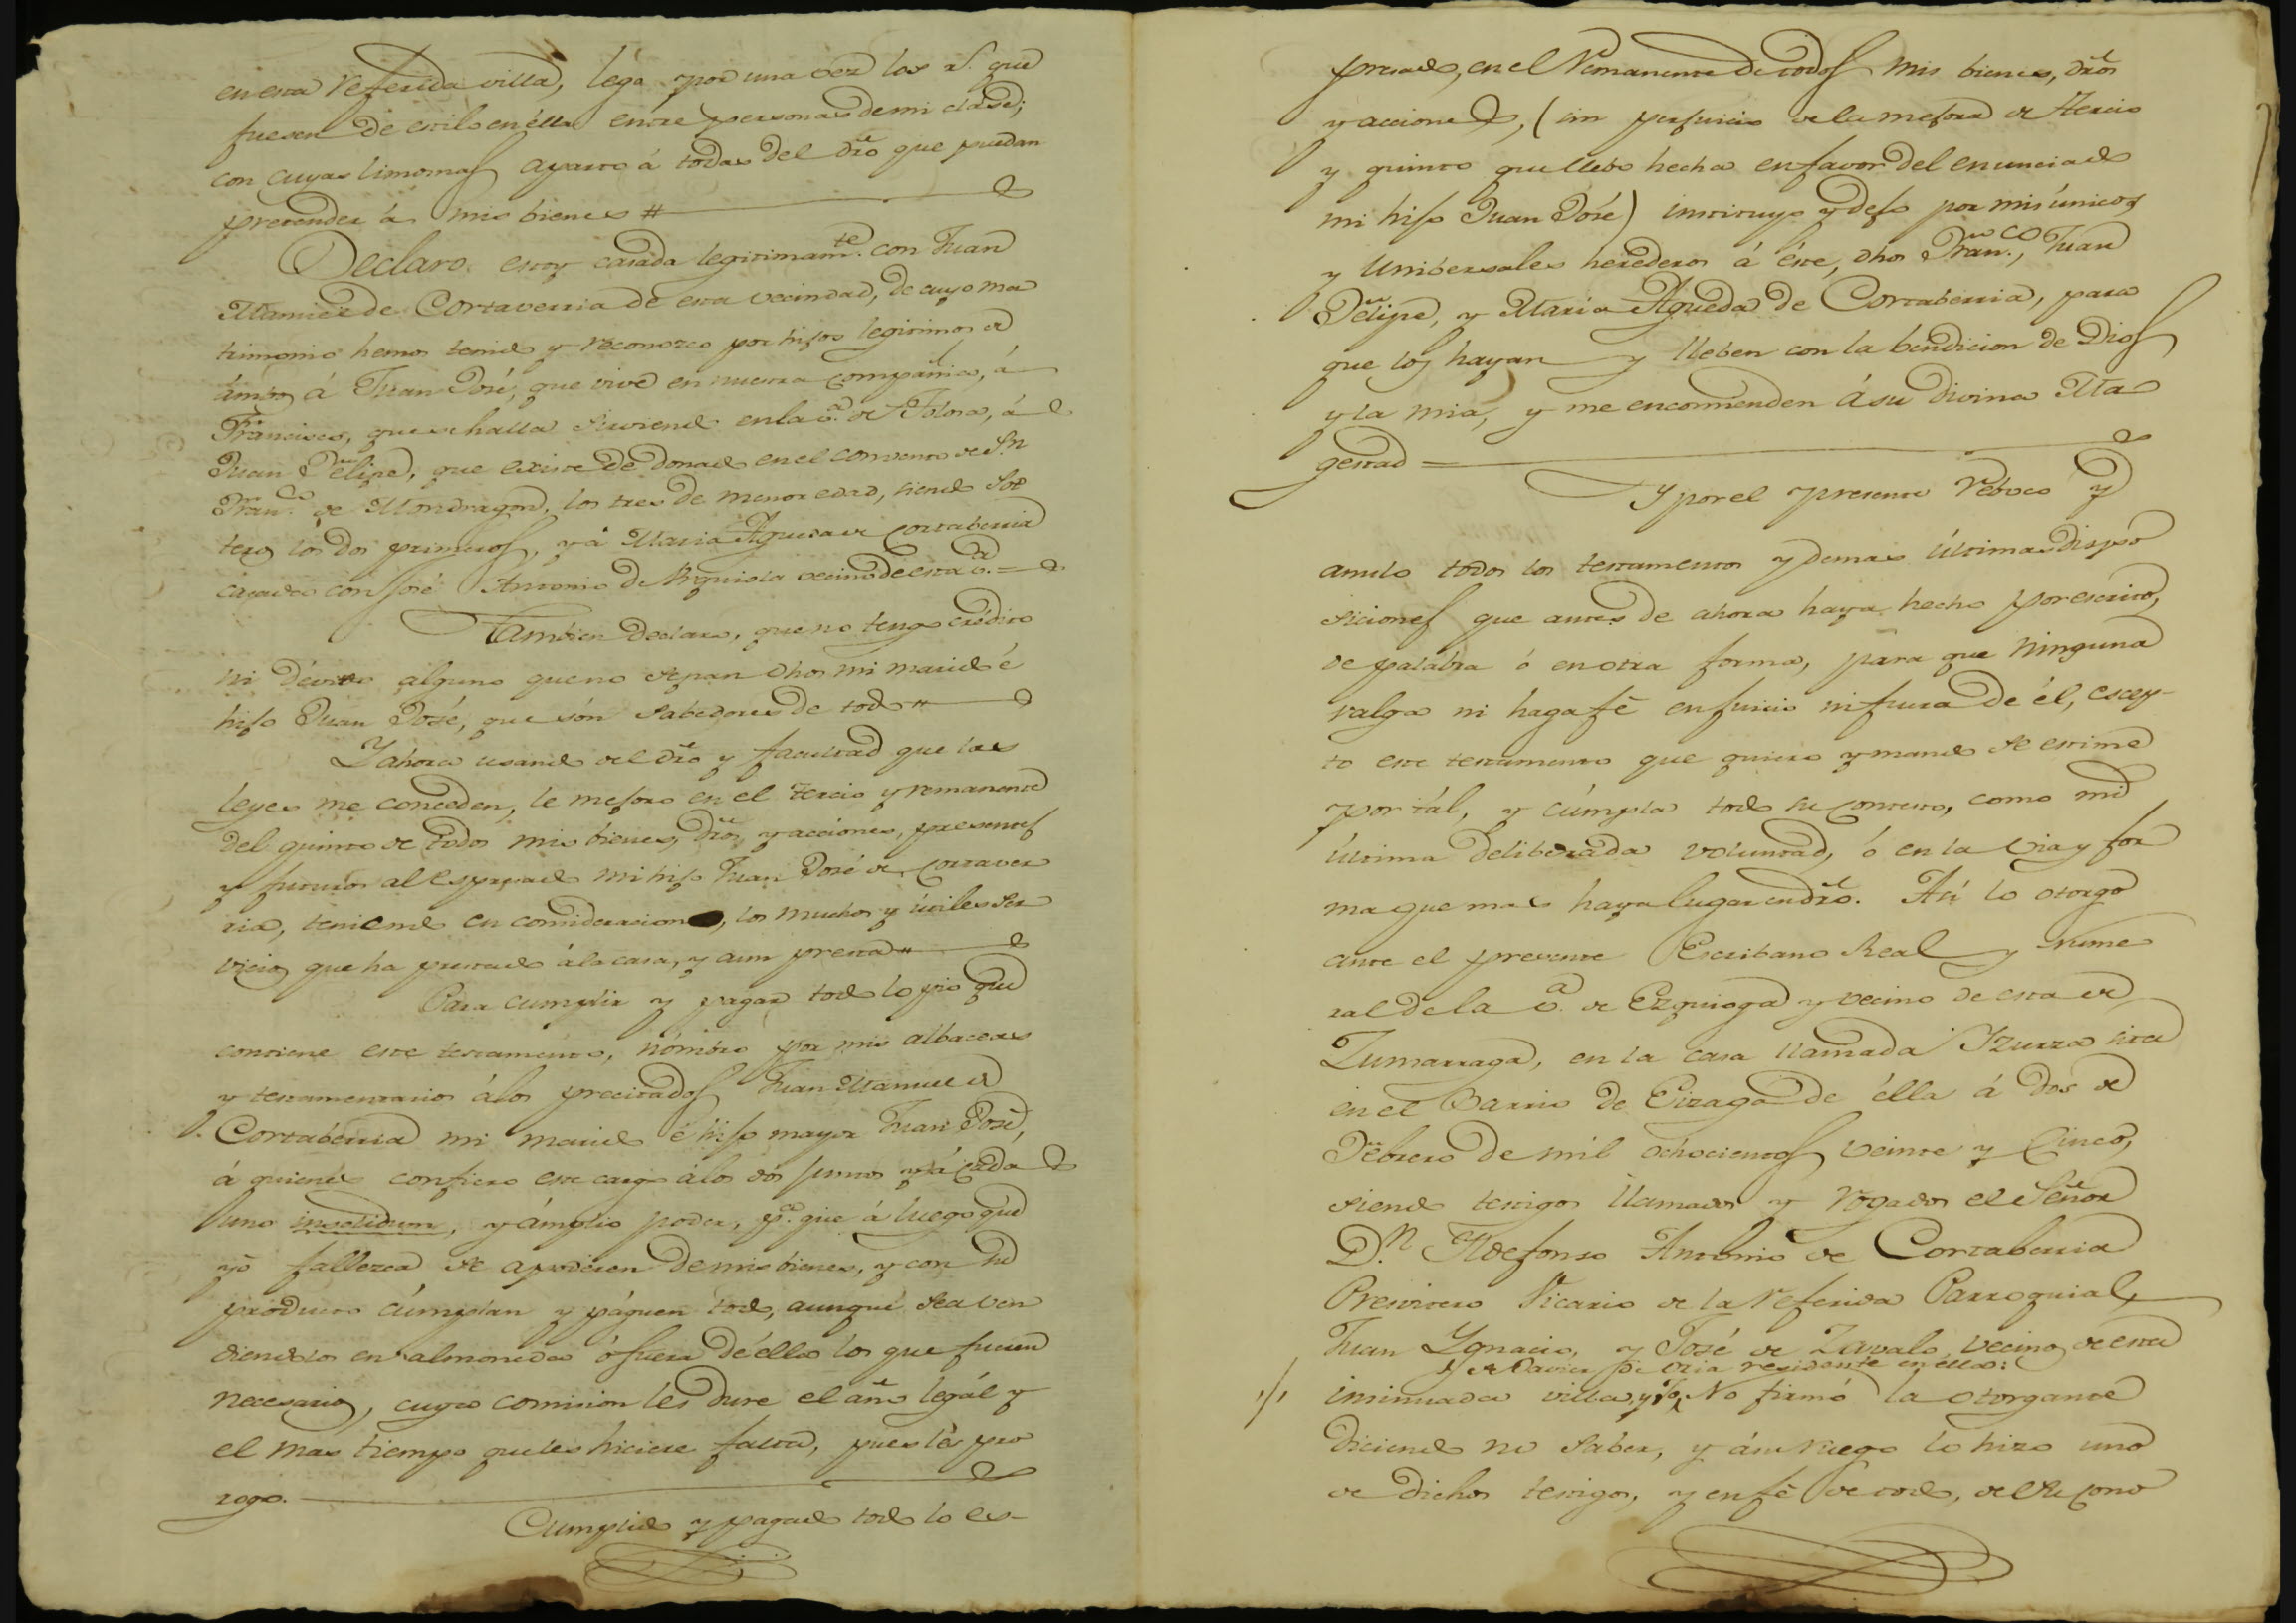 en esta referida villa, léga por una véz los rs. que
fuesen de estilo en élla entre personas de mi clase;
con cuyas limosnas aparto á todas del dro que puedan
pretender á mis bienes #
Declaro estoy casada legitimamte. con Juan
Manuel de Cortaverria de esta vecindad, de cuyo ma
trimonio hemos tenido y reconozco por hijos legitimos de
ámbos á Juan José, que vive en nuestra compañia, á
Francisco, que se halla sirviendo en la va. de Tolosa, á
Juan Felipe, que existe de donado en el convento de Sn
Franco. de Mondragon, los tres de menor edad, siendo sol
teros los dos primeros, y á Maria Agueda de Cortaberria
casada con José Antonio de Arguiola vecino de esta va. =
Tambien declaro, que no tengo crédito
ni dévito alguno que no sepan dhos mi marido é
hijo Juan José, que són sabedores de todo #
Y ahora usando del dro y facultad que las
leyes me conceden, le mejoro en el tercio y remanente
del quinto de todos mis bienes, dros, y acciones, presentes
y futuros al espresado mi hijo Juan José de Cortaver
ria, teniendo en consideracion, los muchos y útiles ser
vicios que ha prestado á la casa, y aun presta #
Para cumplir y pagar todo lo pio que
contiene este testamento, nómbro por mis albaceas
y testamentarios á los precitados Juan Manuel de
Cortaberria mi marido é hijo mayor Juan José,
á quienes confiero este cargo á los dos juntos y á cada
uno insolidum, y ámplio poder, pa. que á luego que
yo fallezca se apoderen de mis bienes, y con su
producto cúmplan y páguen todo, aunque sea ven
diendolos en almoneda ó fuera de élla los que fueren
necesarios, cuya comision les dure el año legál y
el mas tiempo que les hiciere falta, pues les pro
rogo.
Cumplido y pagado todo lo es-
presado, en el remanente de todos mis bienes, dros
y acciones, (sin perjuicio de la mejora de tercio
y quinto que llebo hecha en favor del enunciado
mi hijo Juan José) instituyo y dejo por mis únicos
y universales herederos á éste, dhos Franco., Juan
Felipe, y Maria Agueda de Cortaberria, para
que los hayan y lleben con la bendicion de Dios
y la mia, y me encomienden á su divina Ma
gestad =
Y por el presente reboco y
anulo todos los testamentos y demas últimas dispo
siciones que antes de ahora haya hecho por escrito,
de palabra ó en otra forma, para que ninguna
valga ni haga fé en juicio ni fuera de él, escep-
to este testamento que quiero y mando se estime
por tál, y cúmpla todo su contesto, como mi
última deliberada voluntad, ó en la via y for
ma que mas haya lugar en dro. Asi lo otorgo
ante el presente Escribano Real y nume
ral de la va. de Ezquioga y vecino de esta de
Zumarraga, en la casa llamada Yzurza sita
en el Barrio de Eizaga de élla á dos de
Febrero de mil ochocientos veinte y cinco,
siendo testigos llamados y rogados el Señor
D.n Yldefonso Antonio de Cortaberria
Presvitero Vicario de la referida Parroquial,
Juan Ygnacio, y José de Zavalo vecinos de esta
residente en élla:
insinuada villa, No firmó la otorgante
diciendo no saber, y á su ruego lo hizo uno
de dichos testigos, y en fé de todo, de el cono